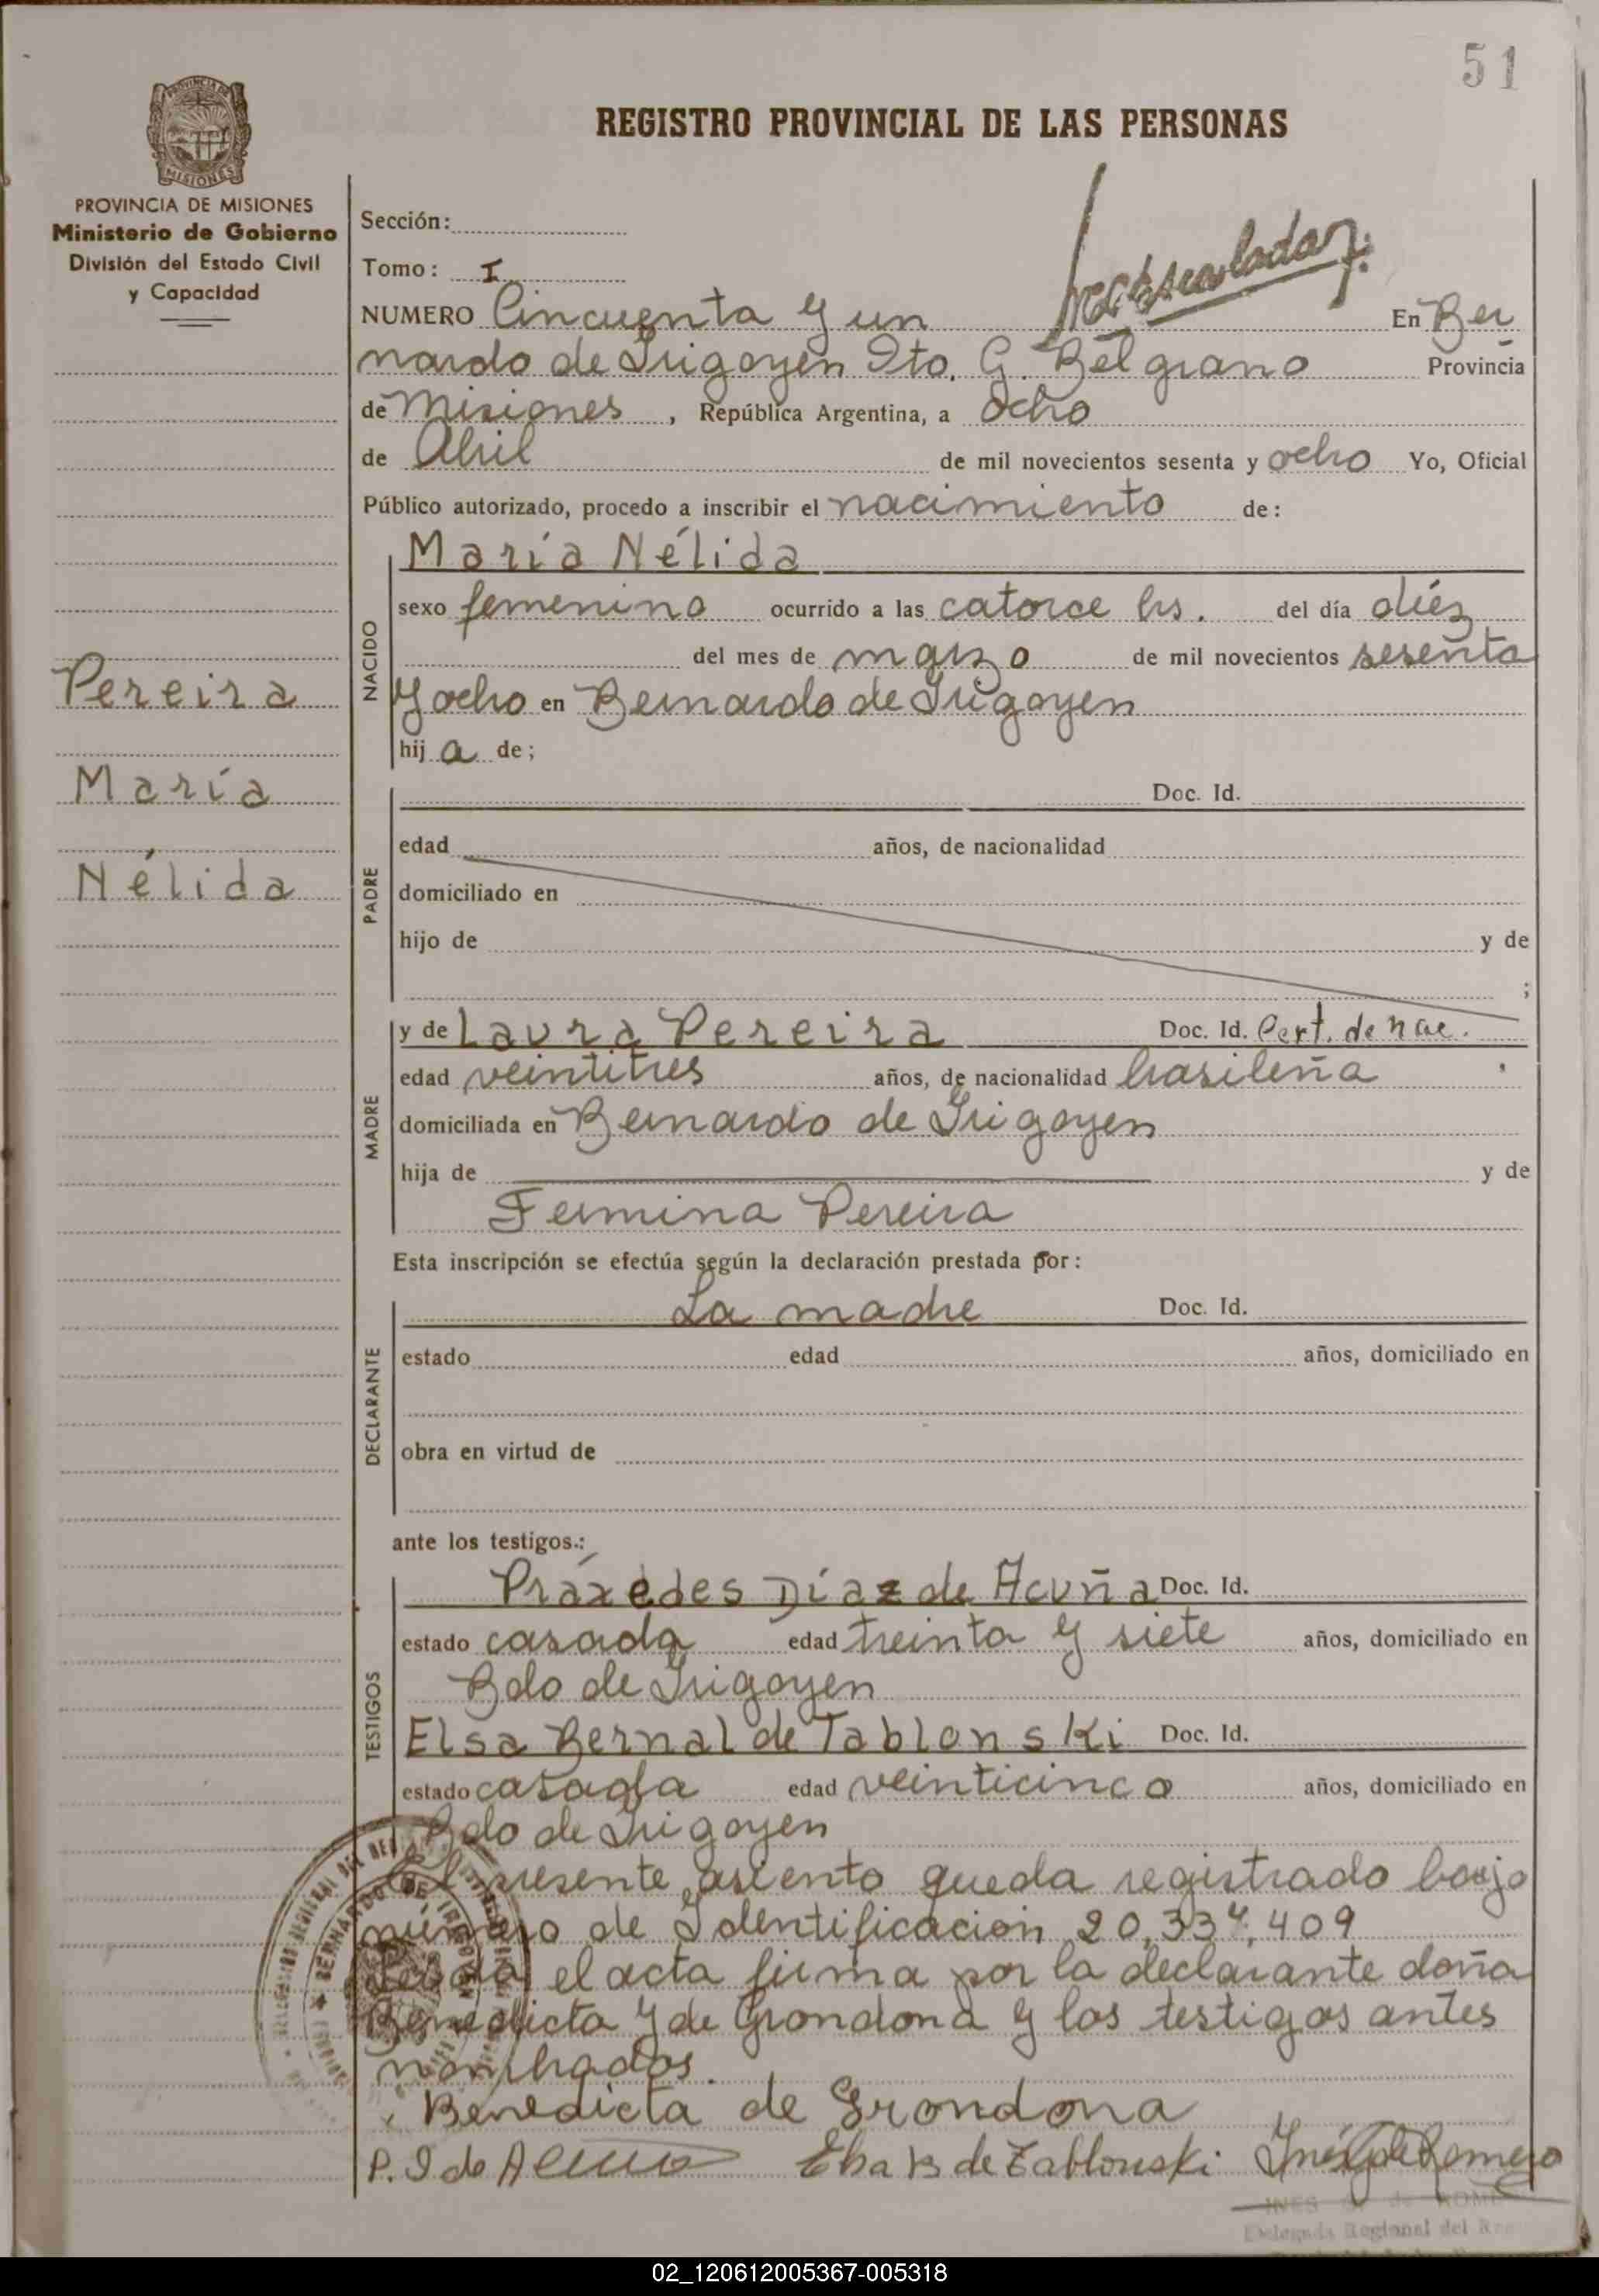 51
REGISTRO PROVINCIAL DE LAS PERSONAS
PROVINCIA DE
MISIONES
PROVINCIA DE MISIONES
Ministerio de Gobierno
División del Estado Civil
y Capacidad
Sección:
Tomo: I
NUMERO Cincuenta y un En Ber
nardo de Irigoyen Dto. G. Belgrano Provincia
de Misiones, República Argentina, a ocho
de Abril de mil novecientos sesenta y ocho Yo, Oficial
Público autorizado, procedo a inscribir el nacimiento de:
María Nélida
NACIDO
sexo femenino ocurrido a las catorce hs. del día diéz
del mes de marzo de mil novecientos sesenta
y ocho en Bernardo de Irigoyen
hija de;
Pereira
María
Nélida
PADRE
Doc. Id.
edad años, de nacionalidad
domiciliado en
hijo de y de
;
MADRE
y de Laura Pereira Doc. Id. Cert. de nac.
edad veintitres años, de nacionalidad brasileña
domiciliada en Bernardo de Irigoyen
hija de y de
Fermina Pereira
Esta inscripción se efectúa según la declaración prestada por:
DECLARANTE
La madre Doc. Id.
estado edad años, domiciliado en
obra en virtud de
ante los testigos.:
TESTIGOS
Práxedes Díaz de Acuña Doc. Id.
estado casada edad treinta y siete años, domiciliado en
Bdo de Irigoyen
Elsa Bernal de Tablonski Doc. Id.
estado casada edad veinticinco años, domiciliado en
Bdo de Irigoyen
El presente asiento queda registrado bajo
número de Identificación 20,337,409
Leída el acta firma por la declarante doña
Benedicta Y de Grondona y los testigos antes
nombrados.
Benedicta de Grondona
P. D de Acuña Elsa B de Tablonski Inés G de Romero
INES de ROME
Delegada Regional del
BERNARDO DE IRIGOYEN
02_120612005367-005318